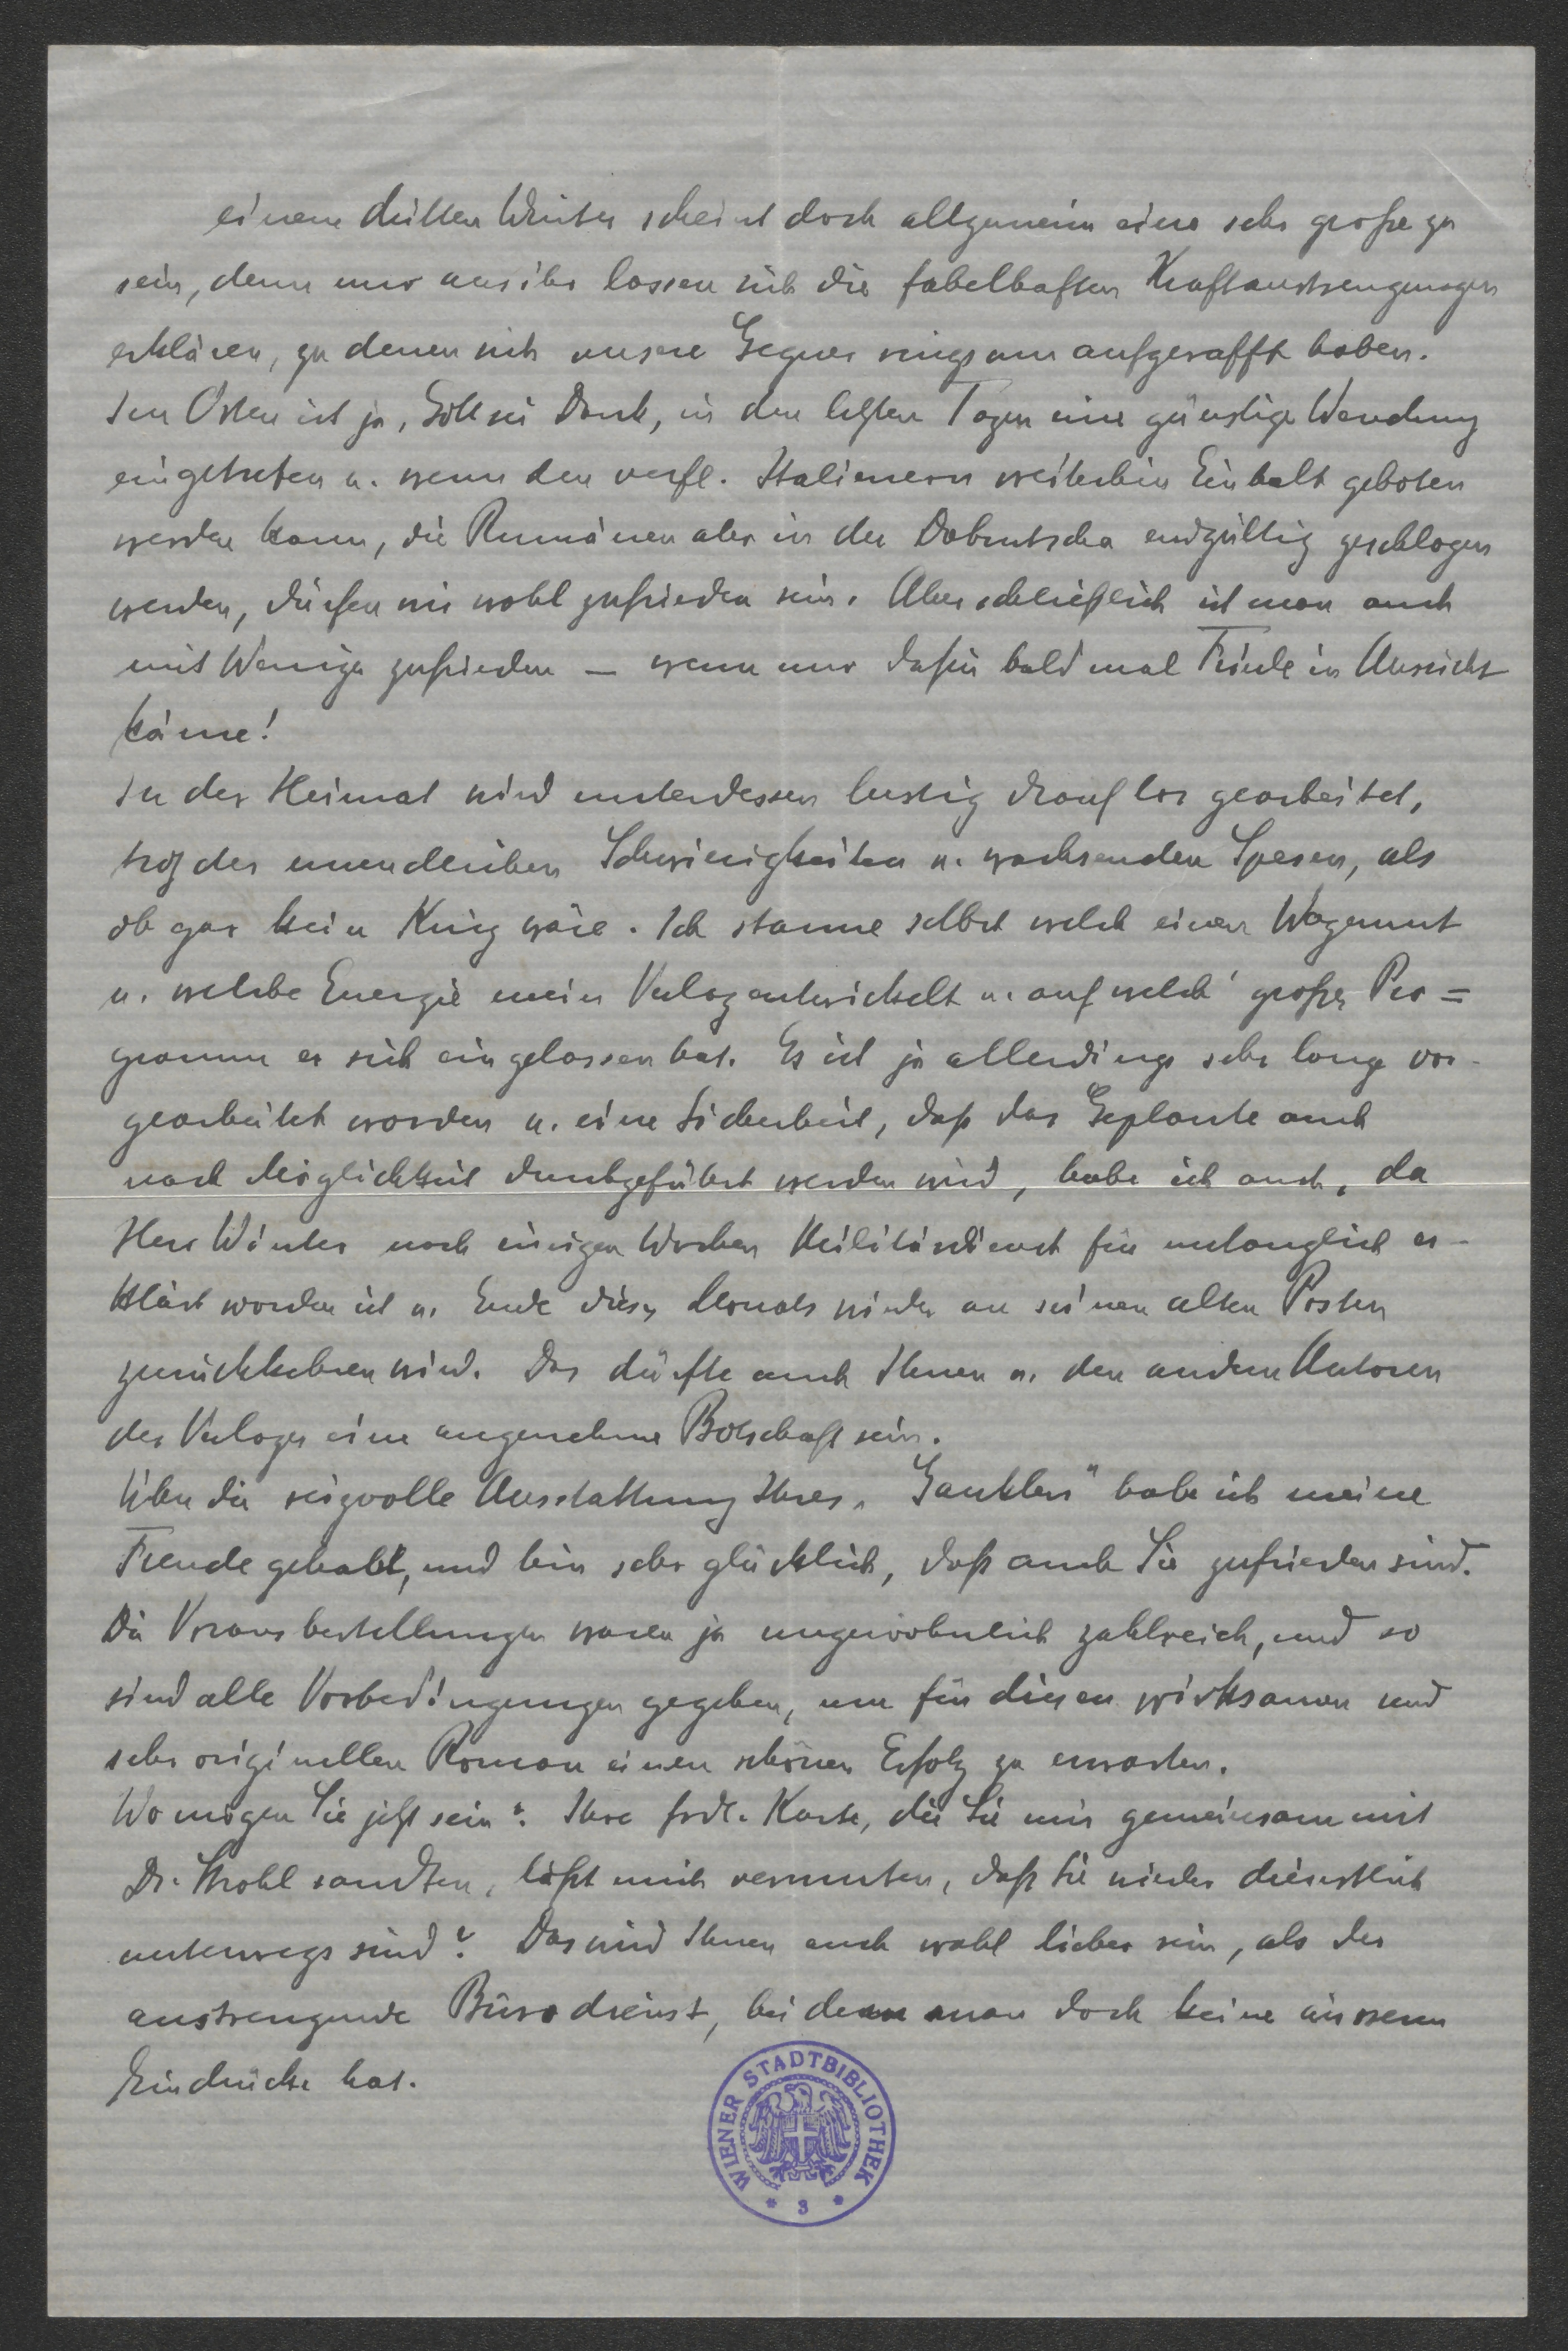 einem dritten Winter scheint doch allgemein eine sehr große zu
sein, denn nur aus ihr lassen sich die fabelhaften Kraftanstrengungen
erklären, zu denen sich unsere Gegner ringsum aufgerafft haben.
Im Osten ist ja, Gott sei Dank, in den letzten Tagen eine günstige Wendung
eingetreten u. wenn den verfl. Italienern weiterhin Einhalt geboten
werden kann, die Rumänen aber in der Dobrutscha endgültig geschlagen
werden, dürfen wir wohl zufrieden sein. Aber schließlich ist man auch
mit Wenige zufrieden – wenn nur dafür bald mal Friede in Aussicht
käme!
In der Heimat wird unterdessen lustig drauf los gearbeitet,
trotz der unendlichen Schwierigkeiten u. wachsenden Spesen, als
ob gar kein Krieg wäre. Ich staune selbst welch einen Wagemut
u. welche Energie mein Verlag entwickelt u. auf welch' großes Pro=
gramm er sich eingelassen hat. Es ist ja allerdings sehr lange vor-
gearbeitet worden u. eine Sicherheit, daß das Geplante auch
nach Möglichkeit durchgeführt werden wird, habe ich auch, da
Herr Winter nach einigen Wochen Militärdienst für untauglich er-
klärt worden ist u. Ende dieses Monats wieder an seinen alten Posten
zurückkehren wird. Das dürfte auch Ihnen u. den andern Autoren
des Verlages eine angenehme Botschaft sein.
Über die reizvolle Ausstattung Ihres „Gauklers" habe ich meine
Freude gehabt, und bin sehr glücklich, daß auch Sie zufrieden sind.
Die Vorausbestellungen waren ja ungewöhnlich zahlreich, und so
sind alle Vorbedingungen gegeben, um für diesen wirksamen und
sehr originellen Roman einen schönen Erfolg zu erwarten.
Wo mögen Sie jetzt sein? Ihre frdl. Karte, die Sie mir gemeinsam mit
Dr. Strobl sandten, läßt mich vermuten, daß Sie wieder dienstlich
unterwegs sind? Das wird Ihnen auch wohl lieber sein, als der
anstrengende Bürodienst, bei dem man doch keine äusseren
Eindrücke hat.
WIENER STADTBIBLIOTHEK
* 3 *